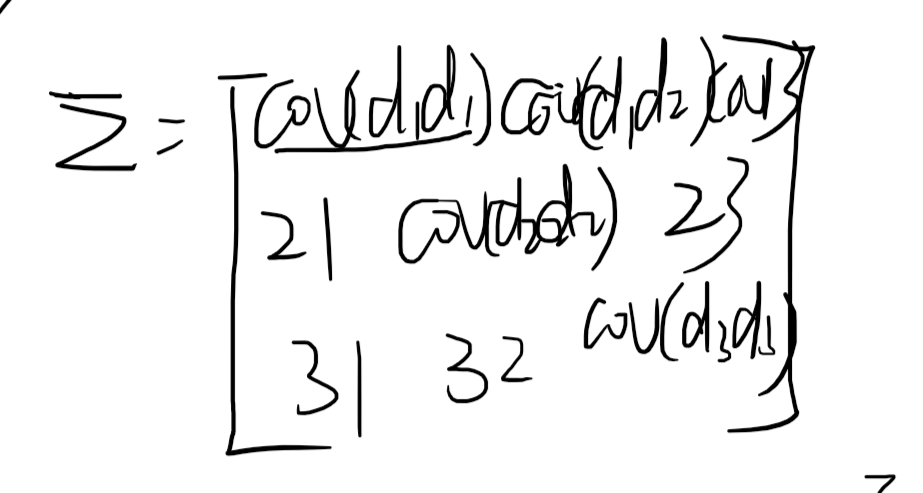 Σ = [cov(d₁d₁) cov(d₁d₂) cov13
21 cov(d₂d₂) 23
31 32 cov(d₃d₃)]